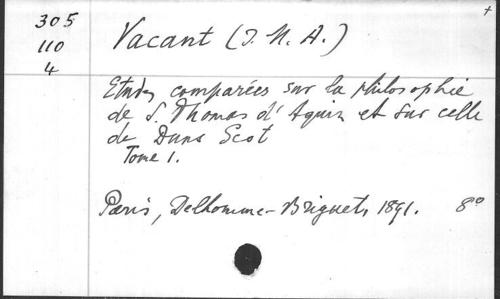 305
110
4
Vacant (J. M. A.)
+
Etudes comparées sur la philosophie
de S. Thomas d'Aquin et sur celle
de Duns Scot
Tome 1.
Paris, Delhomme-Briguet, 1891. 8°